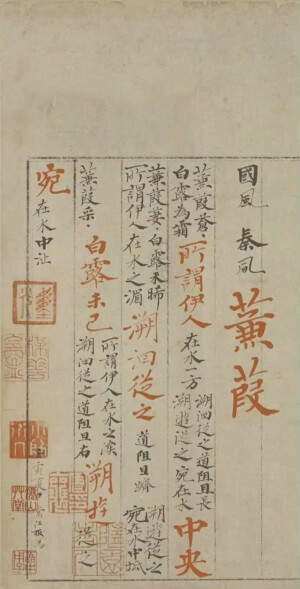 國風 秦風 蒹葭
蒹葭蒼〻
白露為霜
所謂伊人
在水一方
溯洄從之道阻且長
溯遊從之宛在水
中央
蒹葭萋〻白露未晞
所謂伊人在水之湄
溯洄從之
道阻且躋
溯遊從之
宛在水中坻
蒹葭采〻
白露未已
所謂伊人在水之涘
溯洄從之道阻且右
溯游從之
宛在水中沚